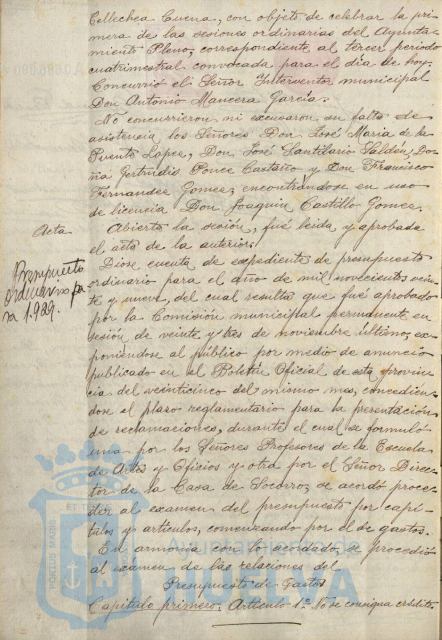 Tellechea Cuena, con objeto de celebrar la pri-
mera de las sesiones ordinarias del Ayunta-
miento Pleno, correspondiente al tercer período
cuatrimestral convocada para el dia de hoy.
Concurrió el Señor Interventor municipal
Don Antonio Mancera García.
No concurrieron ni excusaron su falta de
asistencia, los Señores Don José María de la
Puente López, Don José Santilario Saldén, Do-
ña Gertrudis Ponce Castaño y Don Francisco
Fernandez Gomez; encontrándose en uso
de licencia Don Joaquin Castillo Gomez.
Acta
Abierta la sesión, fué leida y aprobada
el acta de la anterior.
Presupuesto
ordinario pa
ra 1.929.
Dióse cuenta de expediente de presupuesto
ordinario para el año de mil novecientos vein-
te y nueve, del cual resulta que fué aprobado
por la Comisión municipal permanente en
sesión de veinte y tres de noviembre último, ex-
poniéndose al público por medio de anuncio
publicado en el Boletín Oficial de esta provin-
cia del veinticinco del mismo mes, concedien-
dose el plazo reglamentario para la presentación
de reclamaciones, durante el cual se formuló
una por los Señores Profesores de la Escuela
de Artes y Oficios y otra por el Señor Direc-
tor de la Casa de Socorro; se acordó proce-
der al exámen del presupuesto por capi-
tulos y artículos, comenzando por el de gastos.
En armonía con lo acordado, se procedió
al exámen de las relaciones del
Presupuesto de Gastos
Capítulo primero. Artículo 1º No se consigna crédito.
Ayuntamiento de
HUELVA